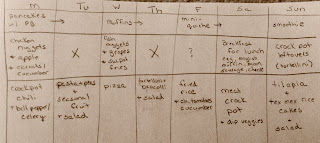 M Tu W Th F Sa Sun
pancakes
w/ PB
muffins
mini-
quiche
smoothie
chicken
nuggets
+ apple
+ carrots/
cucumber
X
nuggets
+ grapes
fries
X
?
Breakfast
for lunch
egg, english
muffin, bacon
sausage, cheese
crock pot
bitovels
(tortellini)
crockpot
chili
+ bell pepper/
celery
pasta + peas
seasonal
fruit
+ salad
pizza
tortellini +
broccoli
+ salad
fried
rice
+ cucumber
crock
pot
+ dip veggies
tilapia
tex mex rice
cakes
+
salad